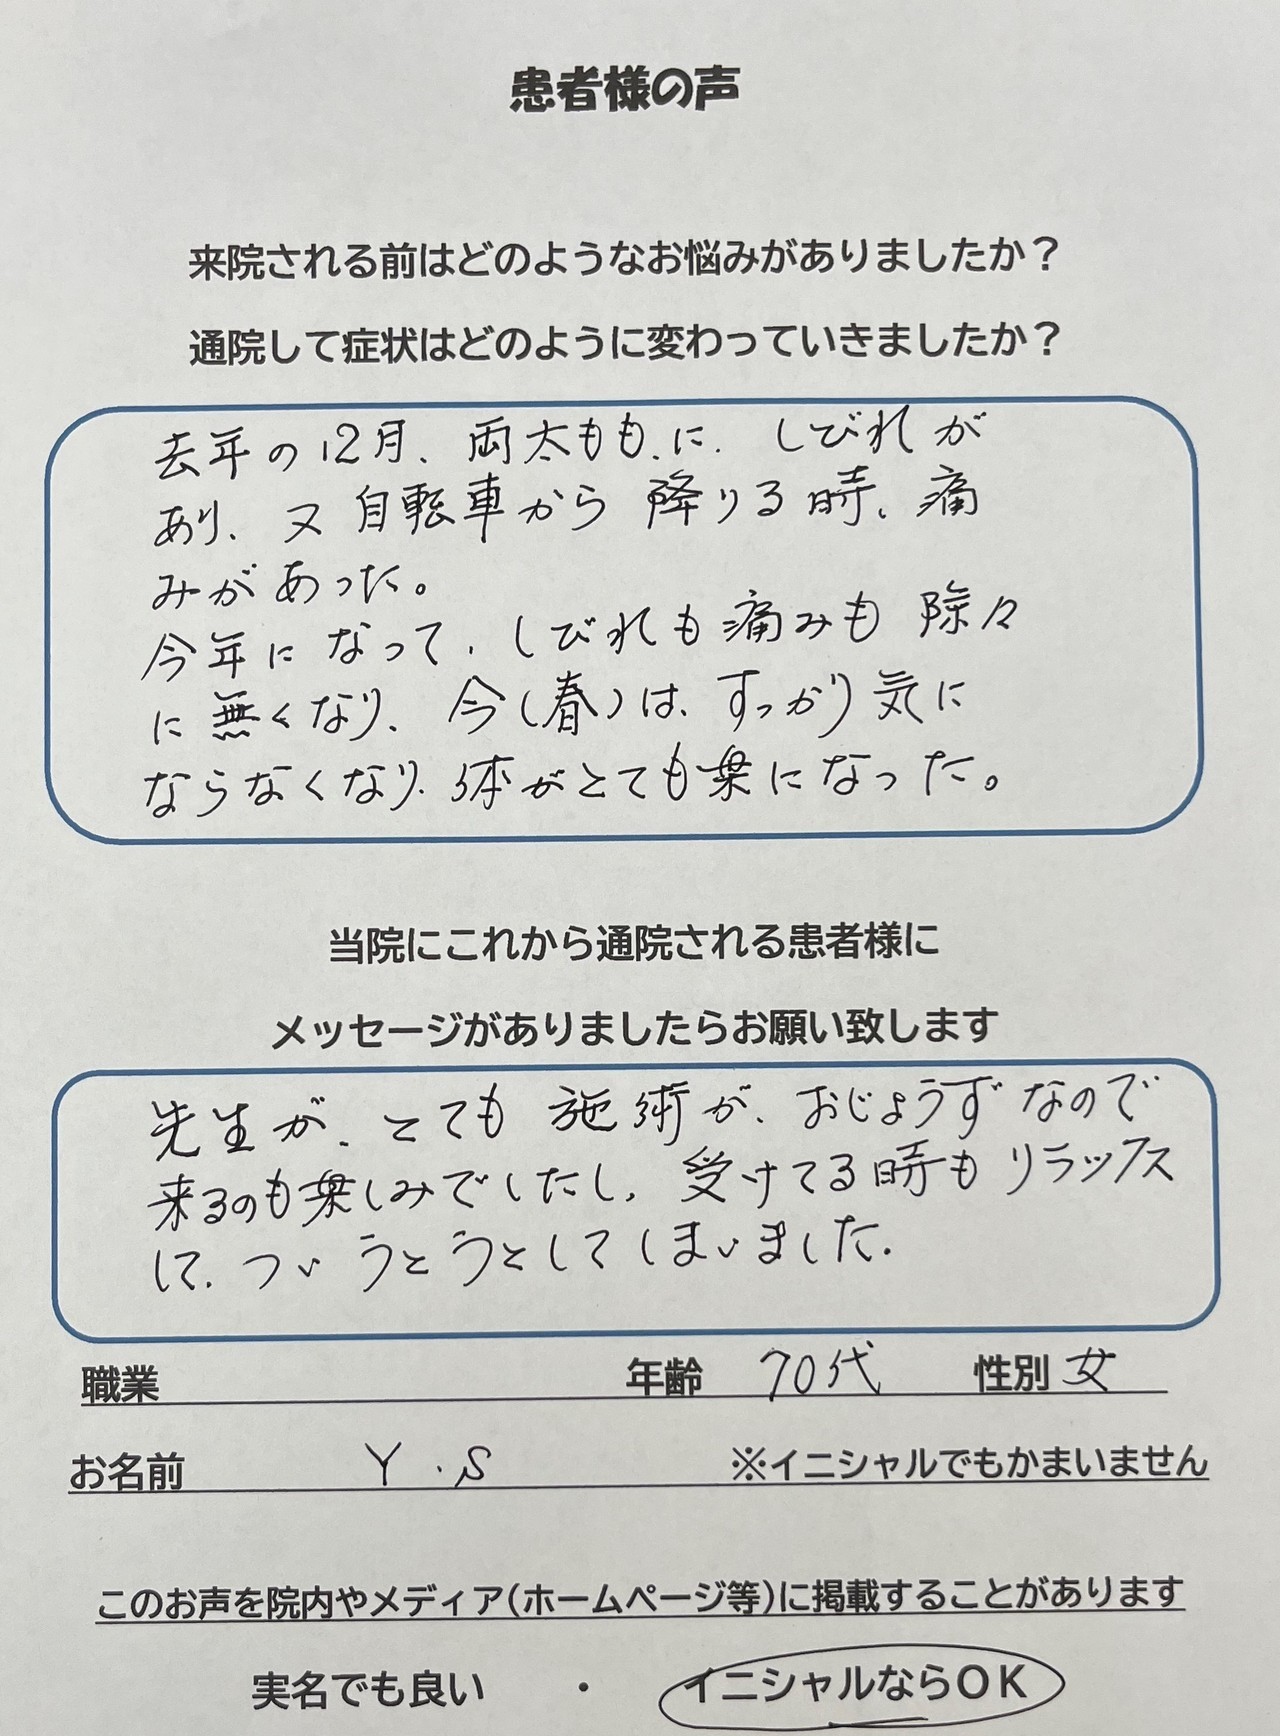 患者様の声
来院される前はどのようなお悩みがありましたか？
通院して症状はどのように変わっていきましたか？
去年の12月、両太ももに、しびれが
あり、又自転車から降りる時、痛
みがあった。
今年になって、しびれも痛みも除々
に無くなり、今(春)は、すっかり気に
ならなくなり、体がとても楽になった。
当院にこれから通院される患者様に
メッセージがありましたらお願い致します
先生が、とても施術が、おじょうずなので
来るのも楽しみでしたし、受けてる時もリラックス
して、ついうとうとしてしまいました。
職業 年齢 70代 性別 女
お名前 Y.S ※イニシャルでもかまいません
このお声を院内やメディア(ホームページ等)に掲載することがあります
実名でも良い ・ イニシャルならOK